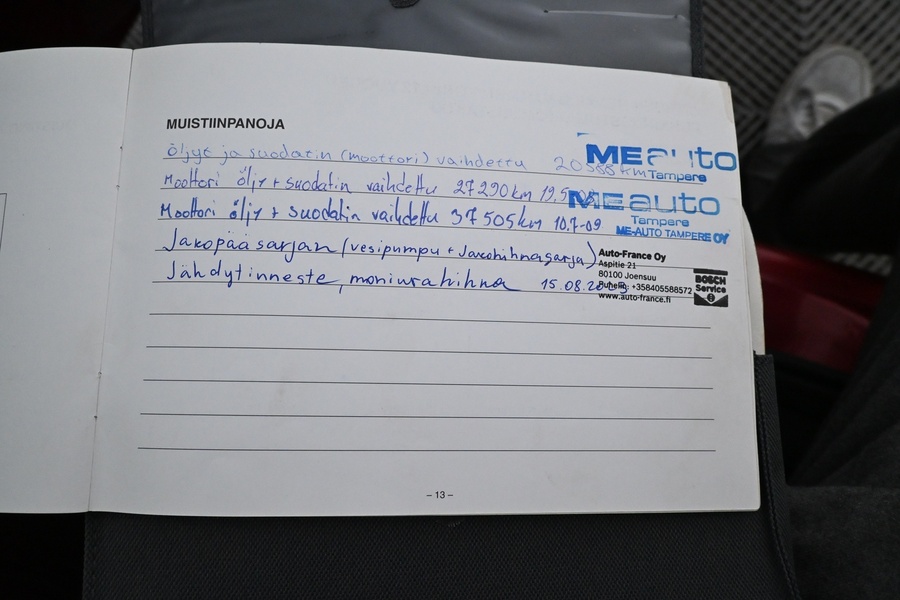 MUISTIINPANOJA
öljyt ja suodatin (moottori) vaihdettu 20588 km
MEauto
Tampere
Moottori öljy + suodatin vaihdettu 27290km 19.5
MEauto
Tampere
ME-AUTO TAMPERE OY
Moottori öljy + suodatin vaihdettu 37505km 10.7-09
Jakopää sarjan (vesipumpu + Jakohihnasarja)
Jähdytinneste, moniurahihna 15.08.20
Auto-France Oy
Aspitie 21
80100 Joensuu
Puhelin: +358405588572
www.auto-france.fi
BOSCH
Service
– 13 –